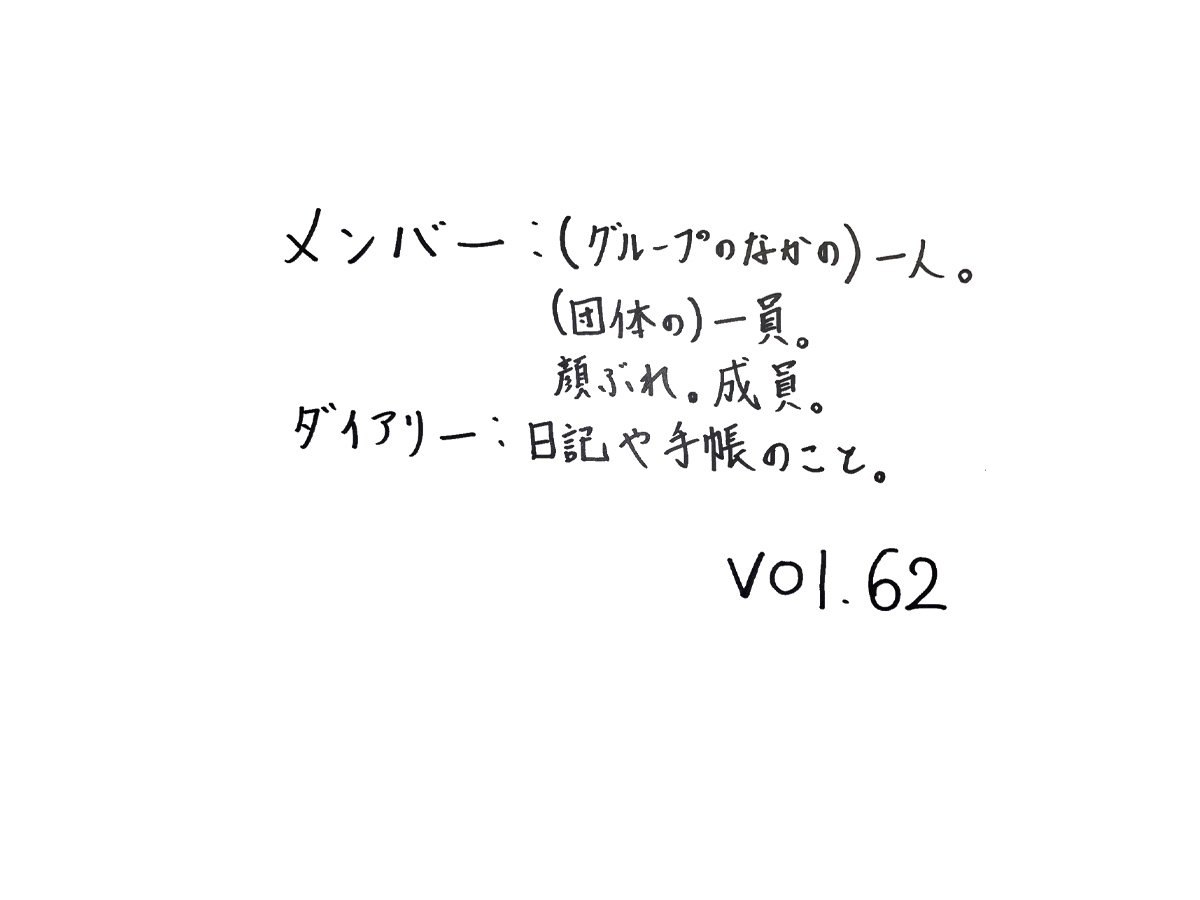 メンバー：(グループのなかの)一人。
(団体の)一員。
顔ぶれ。成員。
ダイアリー：日記や手帳のこと。
vol.62